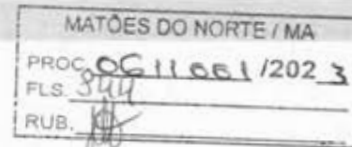 MATÕES DO NORTE / MA
PROC. 0611001 /2023
FLS. 344
RUB.